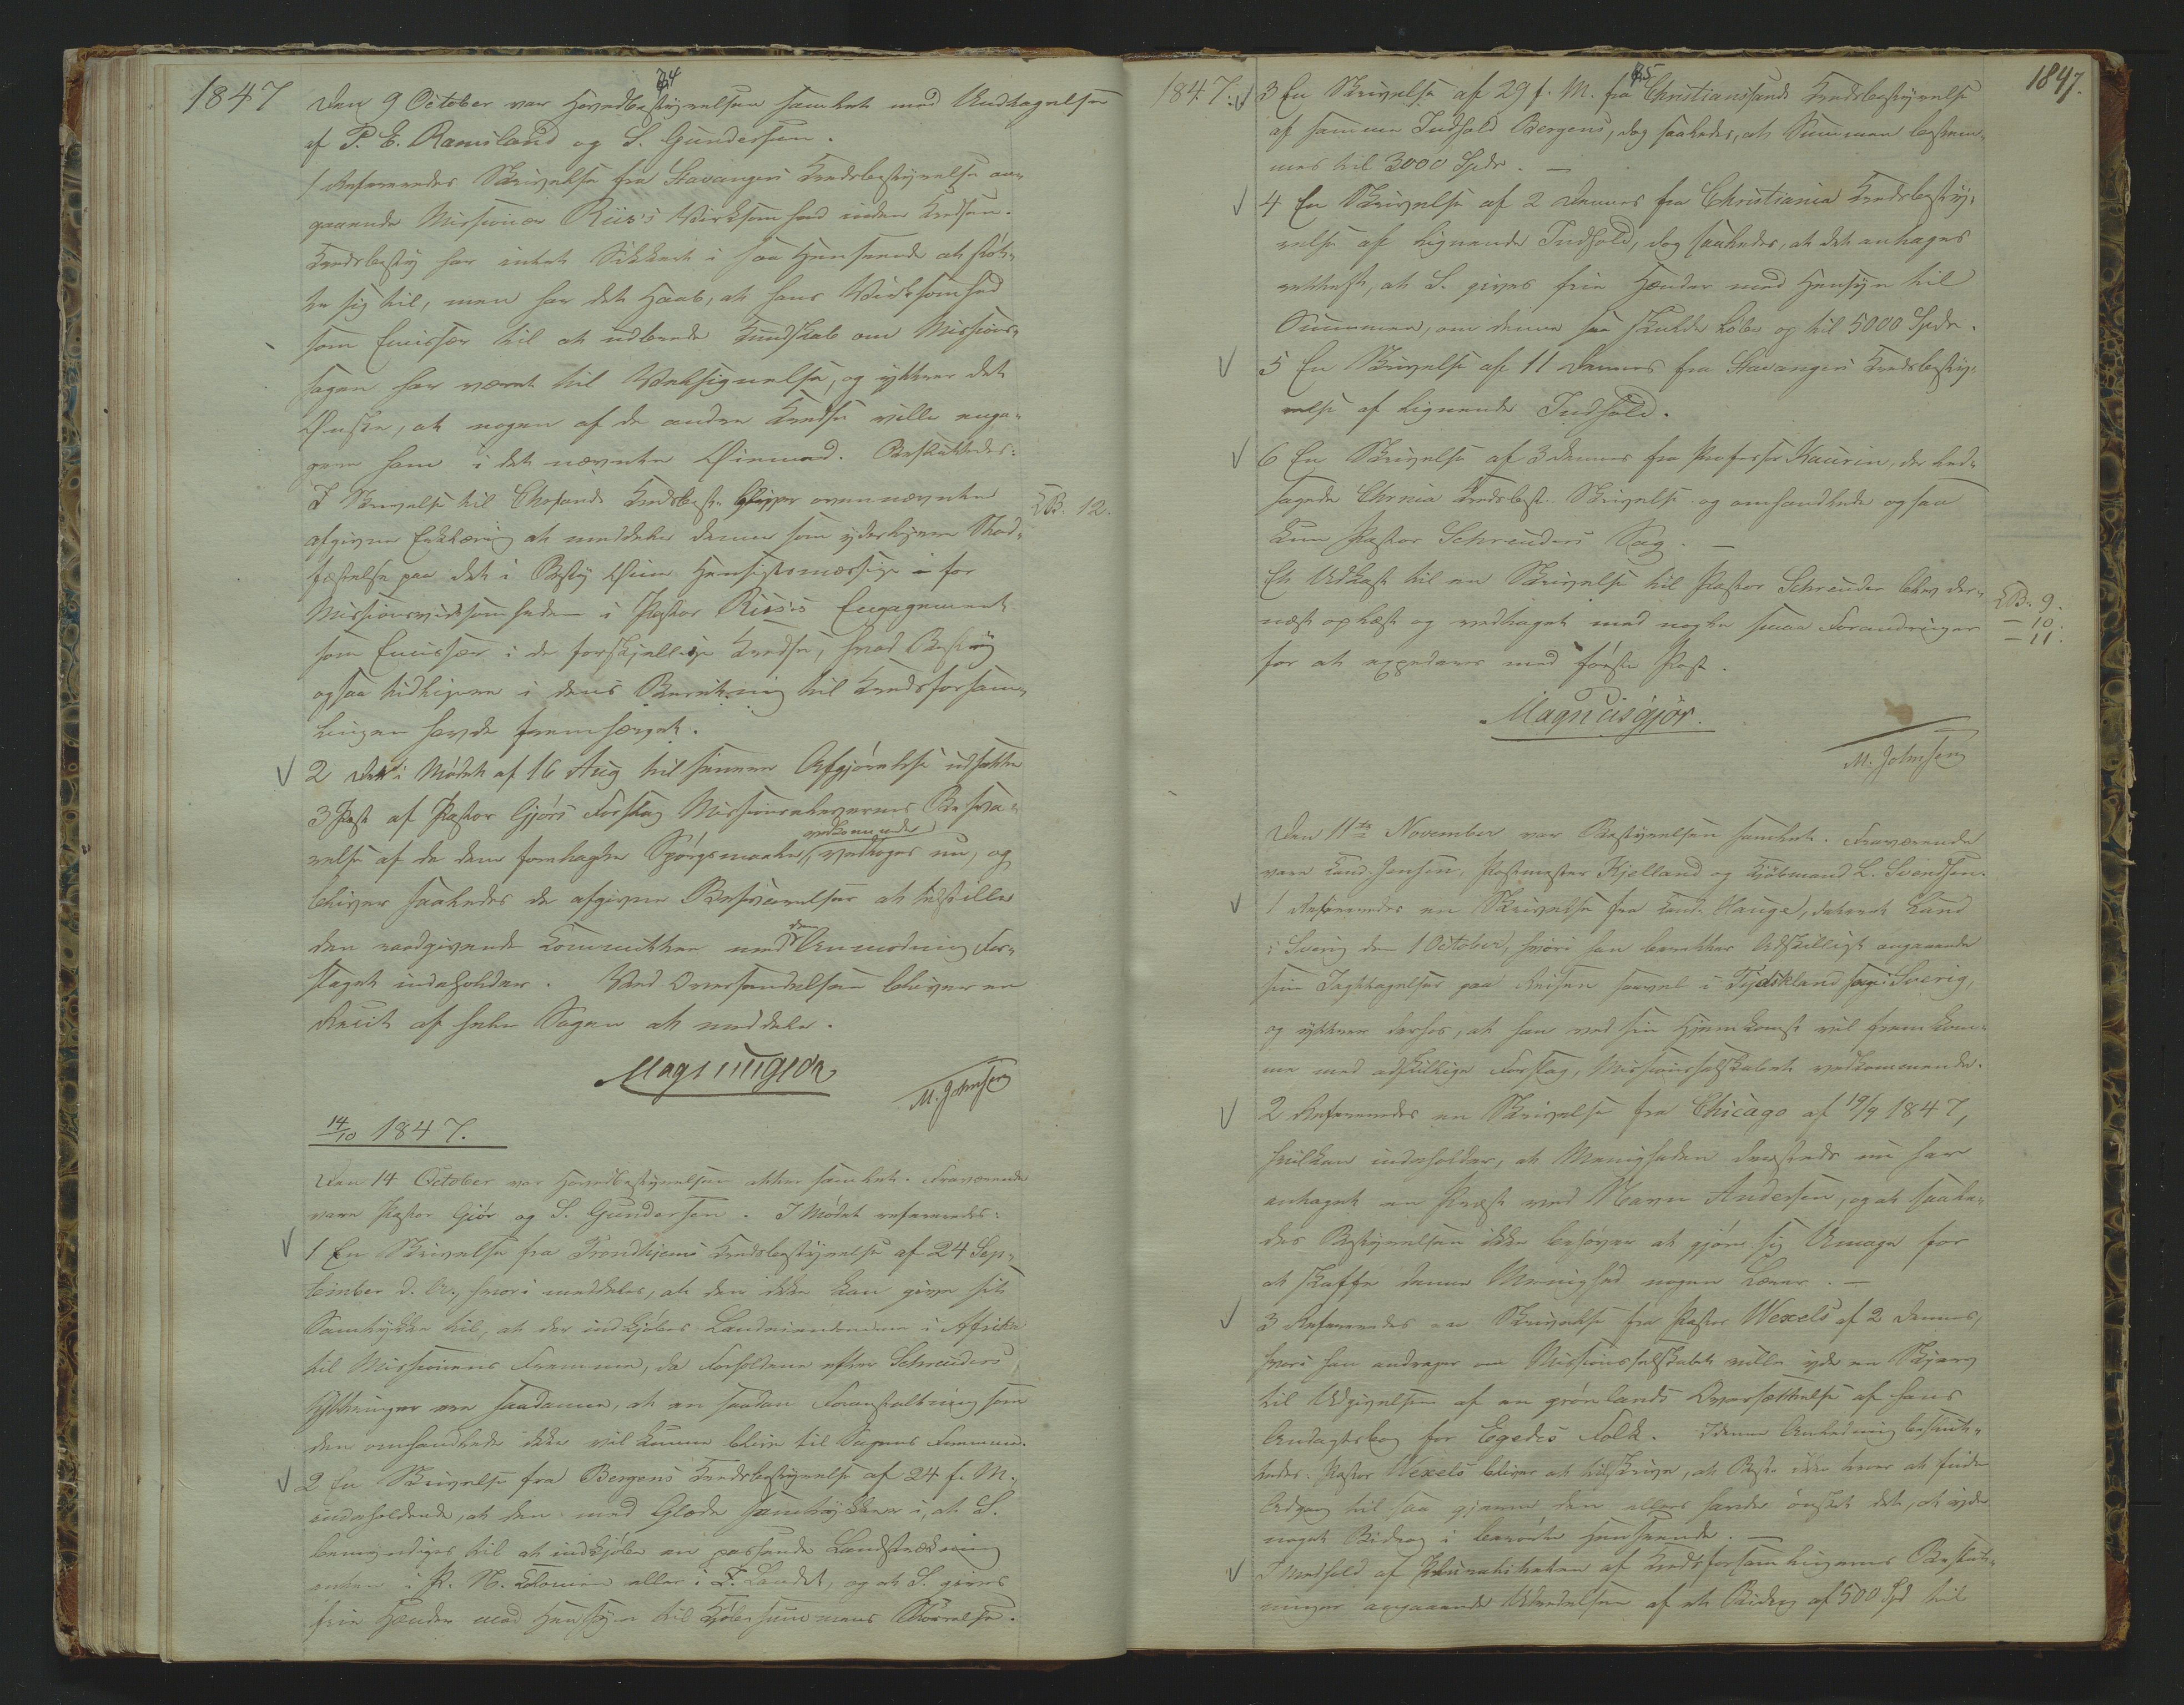 34
1847
Den 9 October var Hovedbestyrelsen samlet med Undtagelse
af P. E. Ramsland og S. Gundersen.
1 Refereredes Skrivelse fra Stavangers Kredsbestyrelse an-
gaaende Missionær Riis's Virksomhed inden Kredsen.
Kredsbesty har intet Sikkert i saa Henseende at støt-
te sig til, men har det Haab, at hans Virksomhed
som Emissær til at udbrede Kundskab om Missions-
sagen har været til Velsignelse, og yttrer det
Ønske, at nogen af de andre Kredse ville enga-
gere ham i det nævnte Øiemed. Besluttedes:
I Skrivelse til Chrsands Kredsbest. bliver ovennævnte
afgivne Erklæring at meddele denne som yderligere Stad-
fæstelse paa det i Besty Øine Hensigtsmæssige i for
Missionsvirksomheden i Pastor Riis's Engagement
som Emissær i de forskjellige Kredse, hvad Besty
ogsaa tidligere i dens Beretning til Kredsforsam-
lingen havde fremhævet.
KB. 12.
2 Det i Mødet af 16 Aug til senere Afgjørelse udsatte
3 Post af Pastor Gjørs Forslag Missionselevernes Besva-
relse af de dem forelagte Spørgsmaale vedkommende vedtoges nu, og
bliver saaledes de afgivne Besvarelser at tilstille
den raadgivende Committee med den Anmodning For-
slaget indeholder. Ved Oversendelsen bliver en
Recit af hele Sagen at meddele.
M. Johnsen
14/10 1847.
Den 14 October var Hovedbestyrelsen atter samlet. Fraværende
vare Pastor Gjør og S. Gundersen. I Mødet refereredes:
1 En Skrivelse fra Trondhjems Kredsbestyrelse af 24 Sep-
tember d. A., hvori meddeles, at den ikke kan give sit
Samtykke til, at der indkjøbes Landeiendomme i Afrika
til Missionens Fremme, da Forholdene efter Schreuders
Yttringer ere saadanne, at en saadan Foranstaltning som
den omhandlede ikke vil kunne blive til Sagens Fremme.
2 En Skrivelse fra Bergens Kredsbestyrelse af 24 f. M.
indeholdende, at den med Glæde samtykker i, at S.
bemyndiges til at indkjøbe en passende Landstrækning
enten i P. N. Colonien eller i Z. Landet, og at S. gives
frie Hænder med Hensyn til Kjøbesummens Størrelse.
35
1847.
1847.
3 En Skrivelse af 29 f. M. fra Christianssands Kredsbestyrelse
af samme Indhold Bergens, dog saaledes, at Summen bestem-
mes til 3000 Spdr. —
4 En Skrivelse af 2 dennes fra Christiania Kredsbesty-
relse af lignende Indhold, dog saaledes, at det antages
rettest, at S. gives frie Hænder med Hensyn til
Summen, om denne saa skulde løbe op til 5000 Spdr.
5 En Skrivelse af 11 dennes fra Stavangers Kredsbesty-
relse af lignende Indhold.
6 En Skrivelse af 3 dennes fra Professor Kaurin, der led-
sagede Chrnia Kredsbest. Skrivelse og omhandlede ogsaa
kun Pastor Schreuders Sag. —
Et Udkast til en Skrivelse til Pastor Schreuder blev der-
næst oplæst og vedtaget med nogle smaa Forandringer
for at expederes med første Post.
KB. 9.
— 10.
— 11.
Magnus Gjør.
M. Johnsen
Den 11te November var Bestyrelsen samlet. Fraværende
vare Cand. Jensen, Postmester Kjelland og Kjøbmand L. Svendsen.
1 Refereredes en Skrivelse fra Cand. Hauge, dateret Lund
i Sverig den 1 October, hvori han beretter Adskilligt angaaende
sine Iagttagelser paa Reisen saavel i Tydskland som i Sverig,
og yttrer derhos, at han ved sin Hjemkomst vil fremkom-
me med adskillige Forslag, Missionsselskabet vedkommende.
2 Refereredes en Skrivelse fra Chicago af 19/9 1847,
hvilken indeholder, at Menigheden dersteds nu har
antaget en Præst ved Navn Andersen, og at saale-
des Bestyrelsen ikke behøver at gjøre sig Umage for
at skaffe denne Menighed nogen Lærer. —
3 Refereredes en Skrivelse fra Pastor Wexels af 2 dennes,
hvori han andrager om Missionsselskabet ville yde en Skjærv
til Udgivelsen af en grønlandsk Oversættelse af hans
Andagtsbog for Egedes Folk. I denne Anledning beslut-
tedes: Pastor Wexels bliver at tilskrive, at Best. ikke troer at finde
Adgang til saa gjerne den ellers havde ønsket det, at yde
noget Bidrag i berørte Henseende. —
I Medhold af Pluraliteten af Kredsforsamlingernes Beslut-
ninger angaaende Udredelsen af et Bidrag af 500 Spd til